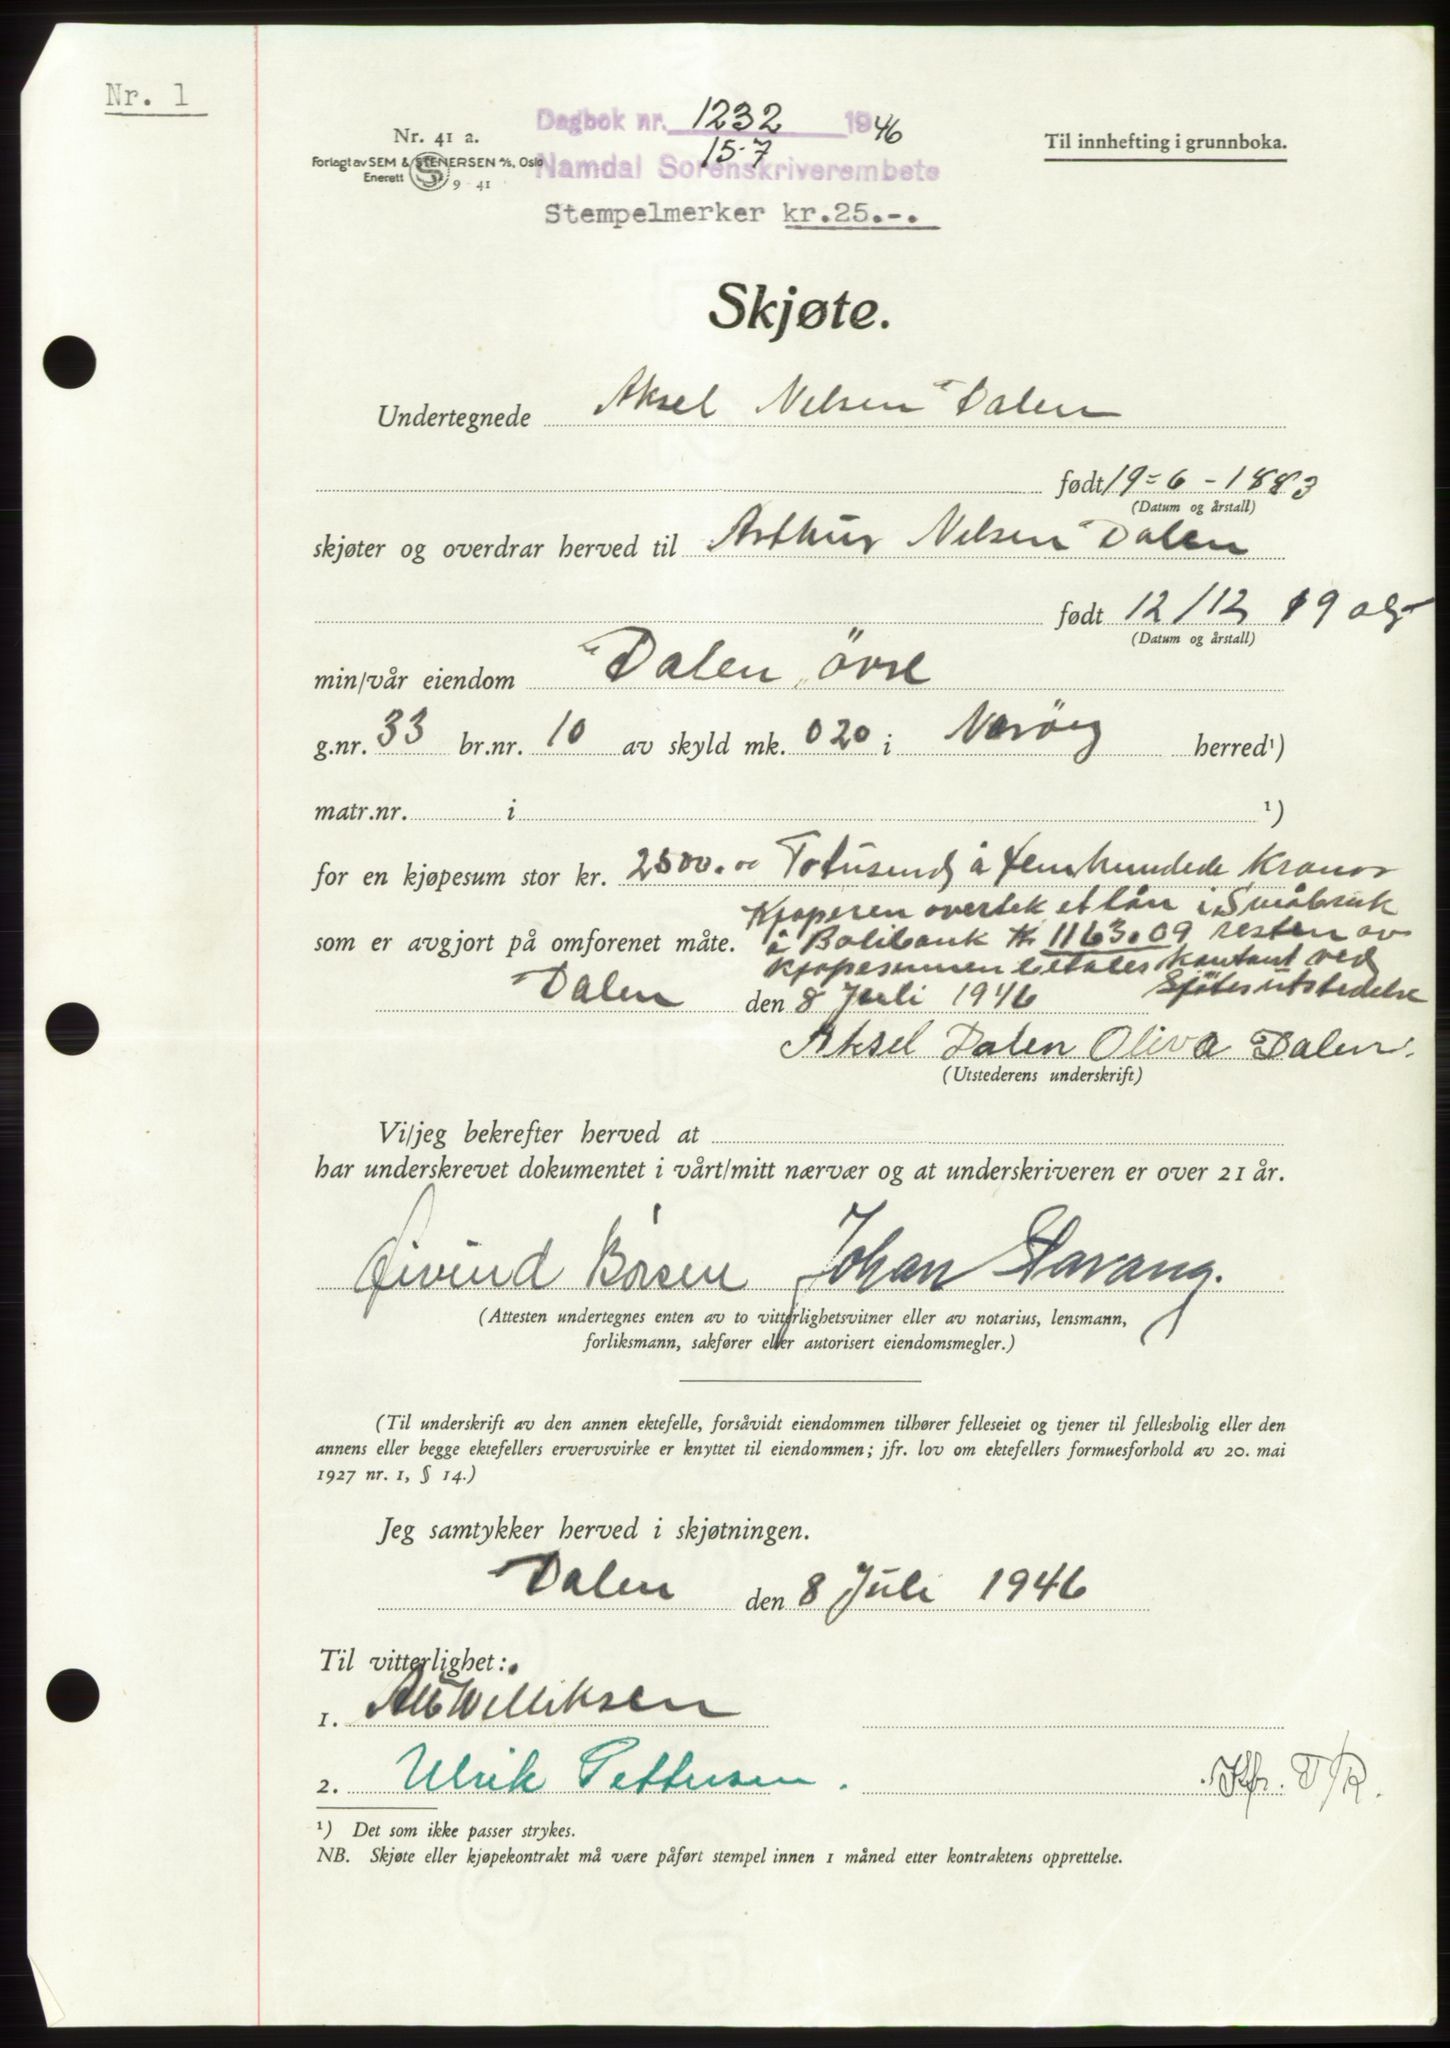 Nr. 1
Dagbok nr. 1232 1946
15-7
Nr. 41 a.
Til innhefting i grunnboka.
Forlagt av SEM & STENERSEN A/S, Oslo
Enerett S 9 - 41
Namdal Sorenskriverembete
Stempelmerker kr.25.-.
Skjøte.
Undertegnede Aksel Nelsen Dalen
født 19-6-1883
(Datum og årstall)
skjøter og overdrar herved til Arthur Nelsen Dalen
født 12/12 19
(Datum og årstall)
min/vår eiendom Dalen övre
g.nr. 33 br.nr. 10 av skyld mk. 020 i Neröy herred¹)
matr.nr. i ¹)
for en kjøpesum stor kr. 2500.00 Totusend å femhundede Kroner
Kjøperen overtek et lån i Småbruk
som er avgjort på omforenet måte. å Bolibank Kr 1163.09 resten av
kjøpesummen betales kontant ved
Sjötesutstedelse
Dalen den 8 Juli 1946
Aksel Dalen Oliva Dalen.
(Utstederens underskrift)
Vi/jeg bekrefter herved at
har underskrevet dokumentet i vårt/mitt nærvær og at underskriveren er over 21 år.
Øivind Börsen Johan Stavang.
(Attesten undertegnes enten av to vitterlighetsvitner eller av notarius, lensmann,
forliksmann, sakfører eller autorisert eiendomsmegler.)
(Til underskrift av den annen ektefelle, forsåvidt eiendommen tilhører felleseiet og tjener til fellesbolig eller den
annens eller begge ektefellers ervervsvirke er knyttet til eiendommen; jfr. lov om ektefellers formuesforhold av 20. mai
1927 nr. 1, § 14.)
Jeg samtykker herved i skjøtningen.
Dalen den 8 Juli 1946
Til vitterlighet:
1. Alb Williksen
2. Ulrik Pettersen. Jfr. T/R.
¹) Det som ikke passer strykes.
NB. Skjøte eller kjøpekontrakt må være påført stempel innen 1 måned etter kontraktens opprettelse.